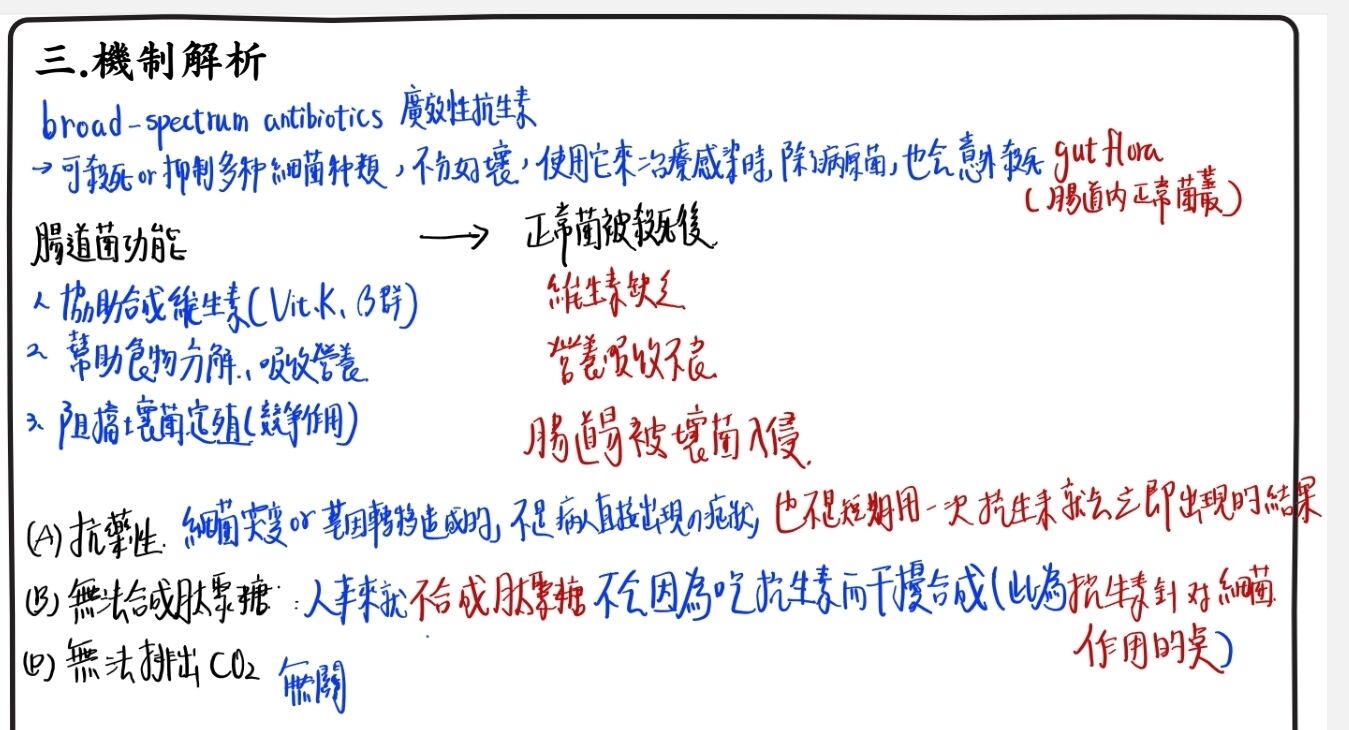 三.機制解析
broad-spectrum antibiotics 廣效性抗生素
→可殺死or抑制多种細菌种類，不分好壞，使用它來治療感染時,除了病原菌,也会意外殺死 gut flora
(腸道內正常菌叢)
腸道菌功能 → 正常菌被殺死後
1. 協助合成維生素(Vit.K、B群) 維生素缺乏
2. 幫助食物分解、吸收營養 營養吸收不良
3、阻擋壞菌定殖(競爭作用) 腸道易被壞菌入侵
(A)抗藥性: 細菌突變or基因轉移造成的,不是病人直接出現の症狀,也不是短期用一次抗生素就会立即出現的結果
(B)無法合成肽聚糖:人本來就不合成肽聚糖 不会因為吃抗生素而干擾合成(此為抗生素針对細菌
作用的点)
(D)無法排出CO2 無關